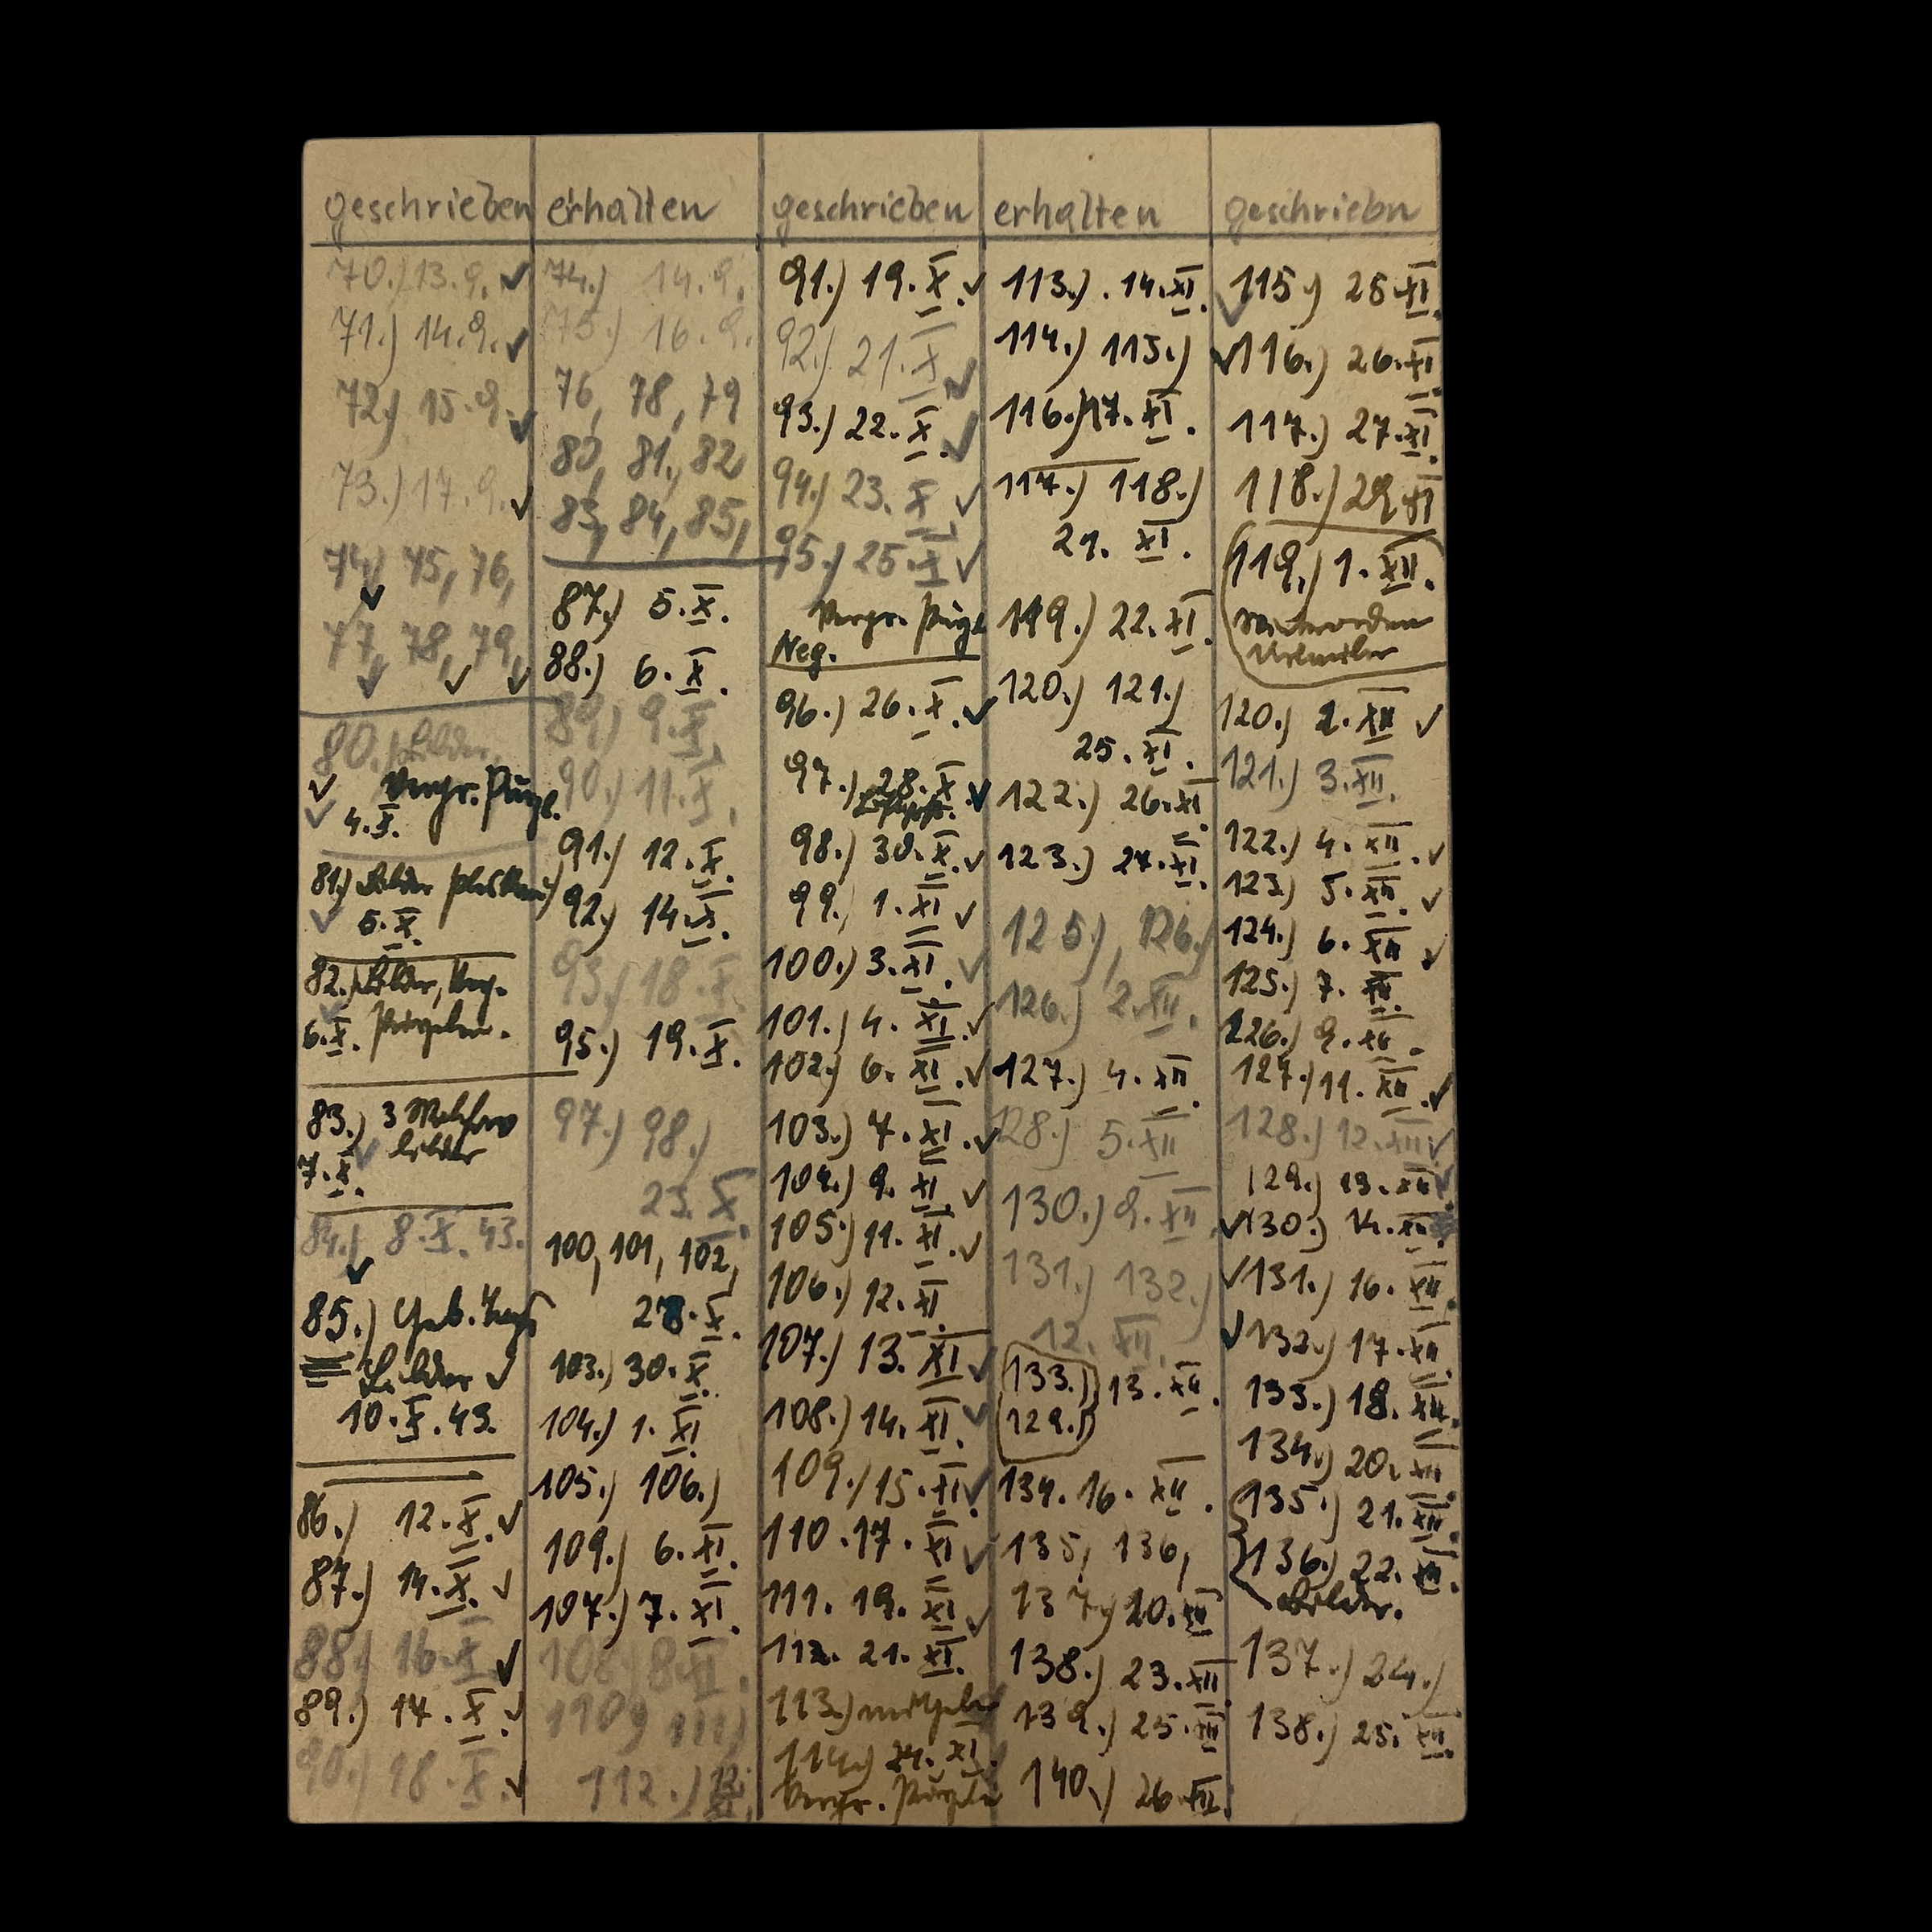 geschrieben
70.) 13.9. ✓
71.) 14.9. ✓
72.) 15.9. ✓
73.) 17.9. ✓
74, 75, 76,
77, 78, 79,
80.) Bilder,
Vergr.
4.X.
81.) Bilder
5.X.
82.) Bilder,
6.X.
83.) 3
bilder
7.X.
84.) 8.X.43.
85.) Geb.
Bilder ✓
10.X.43.
86.) 12.X. ✓
87.) 14.X. ✓
88.) 16.X. ✓
89.) 17.X. ✓
90.) 18.X. ✓
erhalten
74.) 14.9.
75.) 16.9.
76, 78, 79
80, 81, 82
83, 84, 85,
87.) 5.X.
88.) 6.X.
89.) 9.X.
90.) 11.X.
91.) 12.X.
92.) 14.X.
93.) 18.X.
95.) 19.X.
97.) 98.)
23.X.
100, 101, 102,
28.X.
103.) 30.X.
104.) 1.XI.
105.) 106.)
109.) 6.XI.
107.) 7.XI.
108.) 8.XI.
110) 111)
112.) 12.
XI.
geschrieben
91.) 19.X. ✓
92.) 21.X. ✓
93.) 22.X. ✓
94.) 23.X. ✓
95.) 25.X. ✓
Vergr.
Neg.
96.) 26.X. ✓
97.) 28.X. ✓
98.) 30.X. ✓
99.) 1.XI. ✓
100.) 3.XI. ✓
101.) 4.XI. ✓
102.) 6.XI. ✓
103.) 7.XI. ✓
104.) 9.XI. ✓
105.) 11.XI. ✓
106.) 12.XI.
107.) 13.XI. ✓
108.) 14.XI. ✓
109.) 15.XI. ✓
110. 17.XI. ✓
111. 19.XI. ✓
112. 21.XI.
113.)
114.) 24.XI.
Vergr.
erhalten
113.) 14.XI.
114.) 115.)
116.) 17.XI.
117.) 118.)
21.XI.
119.) 22.XI.
120.) 121.)
25.XI.
122.) 26.XI.
123.) 27.XI.
125.), 126.)
126.) 2.XII.
127.) 4.XII.
128.) 5.XII
130.) 9.XII.
131.) 132.)
12.XII.
133.) 13.XII.
129.)
134. 16.XII.
135, 136,
137) 20.XII
138.) 23.XII
139.) 25.XII
140.) 26.XII.
geschriebn
✓ 115.) 25.XI.
✓ 116.) 26.XI
117.) 27.XI.
118.) 29.XI
119.) 1.XII.
120.) 2.XII ✓
121.) 3.XII.
122.) 4.XII. ✓
123) 5.XII. ✓
124.) 6.XII ✓
125.) 7.XII.
126.) 9.XII.
127.) 11.XII. ✓
128.) 12.XII ✓
129.) 13.XII
✓ 130.) 14.XII
✓ 131.) 16.XII.
✓ 132.) 17.XII.
133.) 18.XII.
134.) 20.XII
135.) 21.XII.
136.) 22.XII.
Bilder.
137.) 24.)
138.) 25.XII.